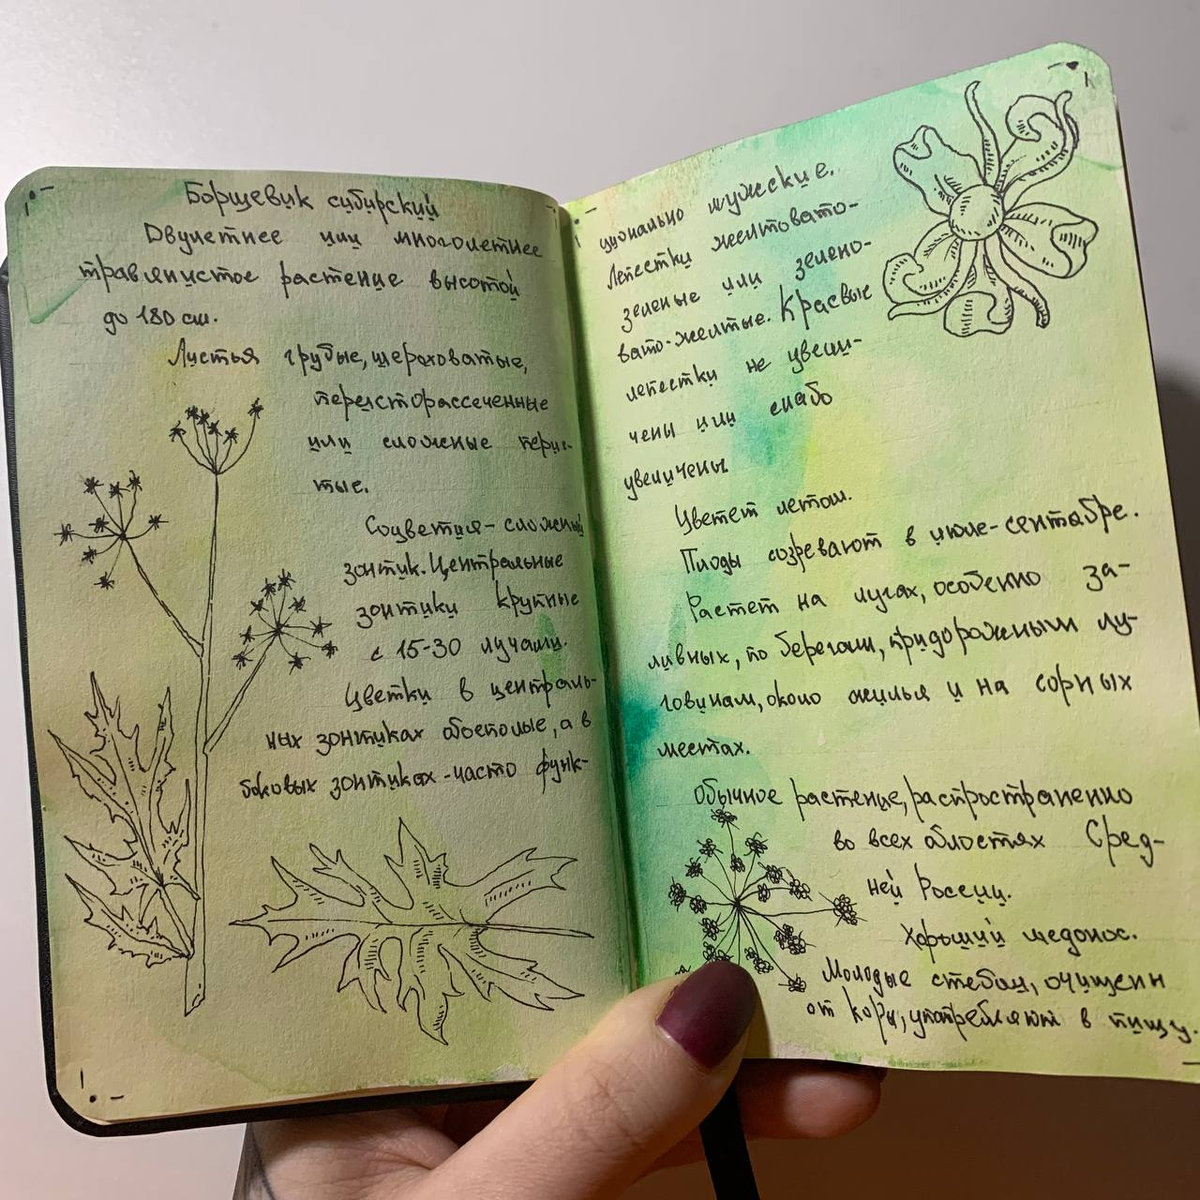 Борщевик сибирский
Двулетнее или многолетнее
травянистое растение высотой
до 180 см.
Листья грубые, шероховатые,
перисторассеченные
или сложные перис-
тые.
Соцветия - сложный
зонтик. Центральные
зонтики крупные
с 15-30 лучами.
Цветки в централь-
ных зонтиках обоеполые, а в
боковых зонтиках - часто функ-
ционально мужские.
Лепестки желтовато-
зеленые или зелено-
вато-желтые. Краевые
лепестки не увели-
чены или слабо
увеличены.
Цветет летом.
Плоды созревают в июле-сентабре.
Растет на лугах, особенно за-
ливных, по берегам, придорожным лу-
говинам, около жилья и на сорных
местах.
Обычное растение, распространено
во всех областях Сред-
ней России.
Хороший медонос.
Молодые стебли, очищенн
от коры, употребляют в пищу.